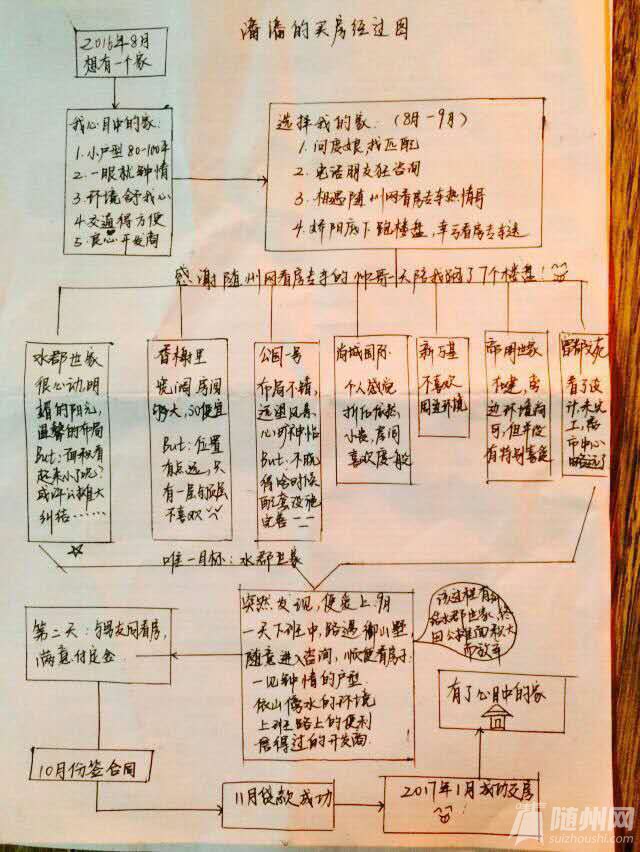 潘潘的买房经过图
2016年8月
想有一个家
我心目中的家:
1.小户型80-100平
2.一眼就钟情
3.环境合我心
4.交通得方便
5.良心开发商
选择我的家:(8月-9月)
1.问度娘找匹配
2.电话朋友狂咨询
3.相遇随州网看房专车热情哥
4.娇阳底下跑楼盘,幸亏看房专车送
感谢随州网看房专车的帅哥一天陪我跑了7个楼盘!
水郡世家
很心动,明
媚的阳光,
温馨的布局
But:面积看
起来小了吧?
或许公摊大
纠结……
香梅里
宽阔,房间
够大,so便宜
But:位置
有点远,只
有一层与顶层
不喜欢
公园一号
布局不错,
远望风景,
心旷神怡
But:不晓
得啥时候
配套设施
完善
尚城国际
个人感觉
拆化依然
小贵,房间
喜欢度一般
新万基
不喜欢
周边环境
帝用世家
权建,周
边环境尚
可,但并没
有特别喜爱
看了设
计未交
上,离
市中心
略远了
唯一目标:水郡世家
突然发现,便爱上.9月
一天下班中,路遇御山墅
随意进入咨询,顺便看房子
一见钟情的户型
依山傍水的环境
上班路上的便利
信得过的开发商
该过程有纠
结水郡世家,终
因公摊面积大
而放弃
第二天:与男友同看房,
满意付定金
有了心目中的家
10月份签合同
11月贷款成功
2017年1月成功交房
随州网
suizhoushi.com